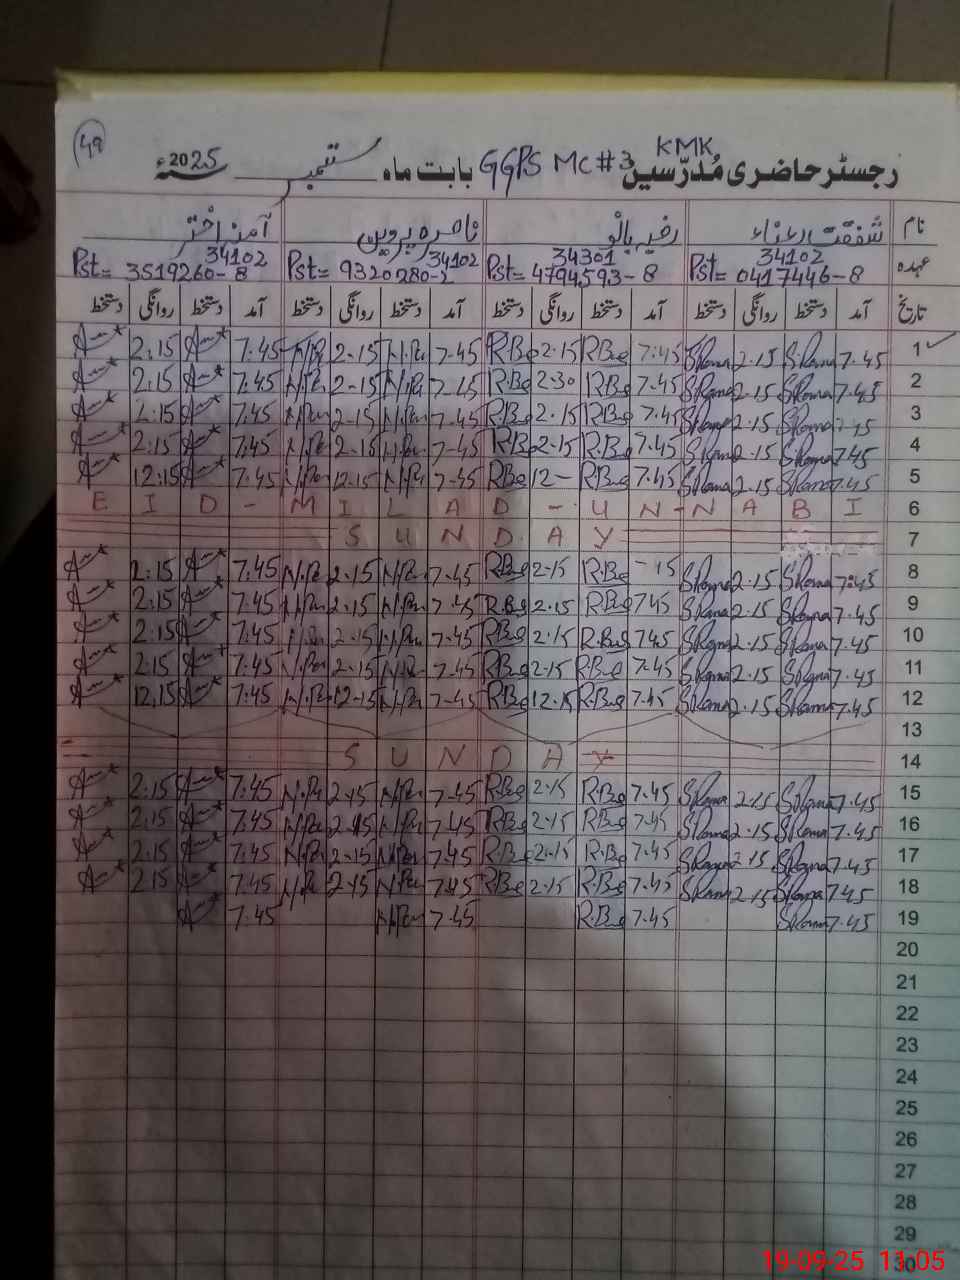 49
رجسٹر حاضری مُدرّسین GGPS MC #3 KMK بابت ماہ ستمبر 2025ء
نام شفقت رعناء ناصرہ پروین آمنہ اختر
عہدہ Pst= 34102 0417446-8 Pst= 34301 4794593-8 Pst= 34102 9320280-2 Pst= 34102 3519260-8
تاریخ آمد دستخط روانگی دستخط آمد دستخط روانگی دستخط آمد دستخط روانگی دستخط آمد دستخط روانگی دستخط
1 7.45 2.15 7.45 R.Be 2.15 R.Be 7.45 N.Per 2.15 N.Per 7.45 2:15
2 7.45 2.15 7.45 R.Be 2-30 R.Be 7.45 N.Per 2-15 N.Per 7.45 2:15
3 2.15 7.45 R.Be 2.15 R.Be 7.45 N.Per 2-15 N.Per 7.45 2:15
4 7.45 2.15 7.45 R.Be 2-15 R.Be 7-45 N.Per 2-15 N.Per 7.45 2:15
5 7.45 2.15 7.45 R.Be 12- R.Be 7-45 N.Per 12.15 N.Per 7.45 12:15
6 EID-MILAD-UN-NABI
7 SUNDAY
8 7:45 2.15 R.Be 2-15 R.Be 7.45 N.Per 2.15 N.Per 7.45 2:15
9 7.45 2.15 7.45 R.Be 2.15 R.Be 7.45 N.Per 2.15 N.Per 7.45 2:15
10 7.45 2.15 7.45 R.Be 2.15 R.Be 7.45 N.Per 2.15 N.Per 7.45 2:15
11 7.45 2.15 7.45 R.Be 2-15 R.Be 7.45 N.Per 2.15 N.Per 7.45 2:15
12 7.45 2.15 7.45 R.Be 12.15 R.Be 7-45 N.Per 12-15 N.Per 7:45 12.15
13
14 SUNDAY
15 7.45 2.15 7.45 R.Be 2-15 R.Be 7.45 N.Per 2.15 N.Per 7:45 2:15
16 7.45 2.15 7.45 R.Be 2-15 R.Be 7.45 N.Per 2.15 N.Per 7.45 2:15
17 7.45 2.15 7.45 R.Be 2.15 R.Be 7.45 N.Per 2.15 N.Per 7.45 2:15
18 7.45 2.15 7.45 R.Be 2.15 R.Be 7.45 N.Per 2.15 N.Per 7.45 2:15
19 7.45 7.45 R.Be 7.45 N.Per 7.45
20
21
22
23
24
25
26
27
28
29
30
19-09-25 11:05